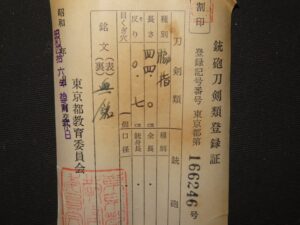 銃砲刀剣類登録証
登録記号番号 東京都第166246号
刀剣類
種別 脇指
長さ 四四.〇
反り 〇.七
目くぎ穴 個
銘文 (表)無銘
(裏)
銃砲
種別
全長
銃身長
口径
昭和
東京都教育委員会
割印